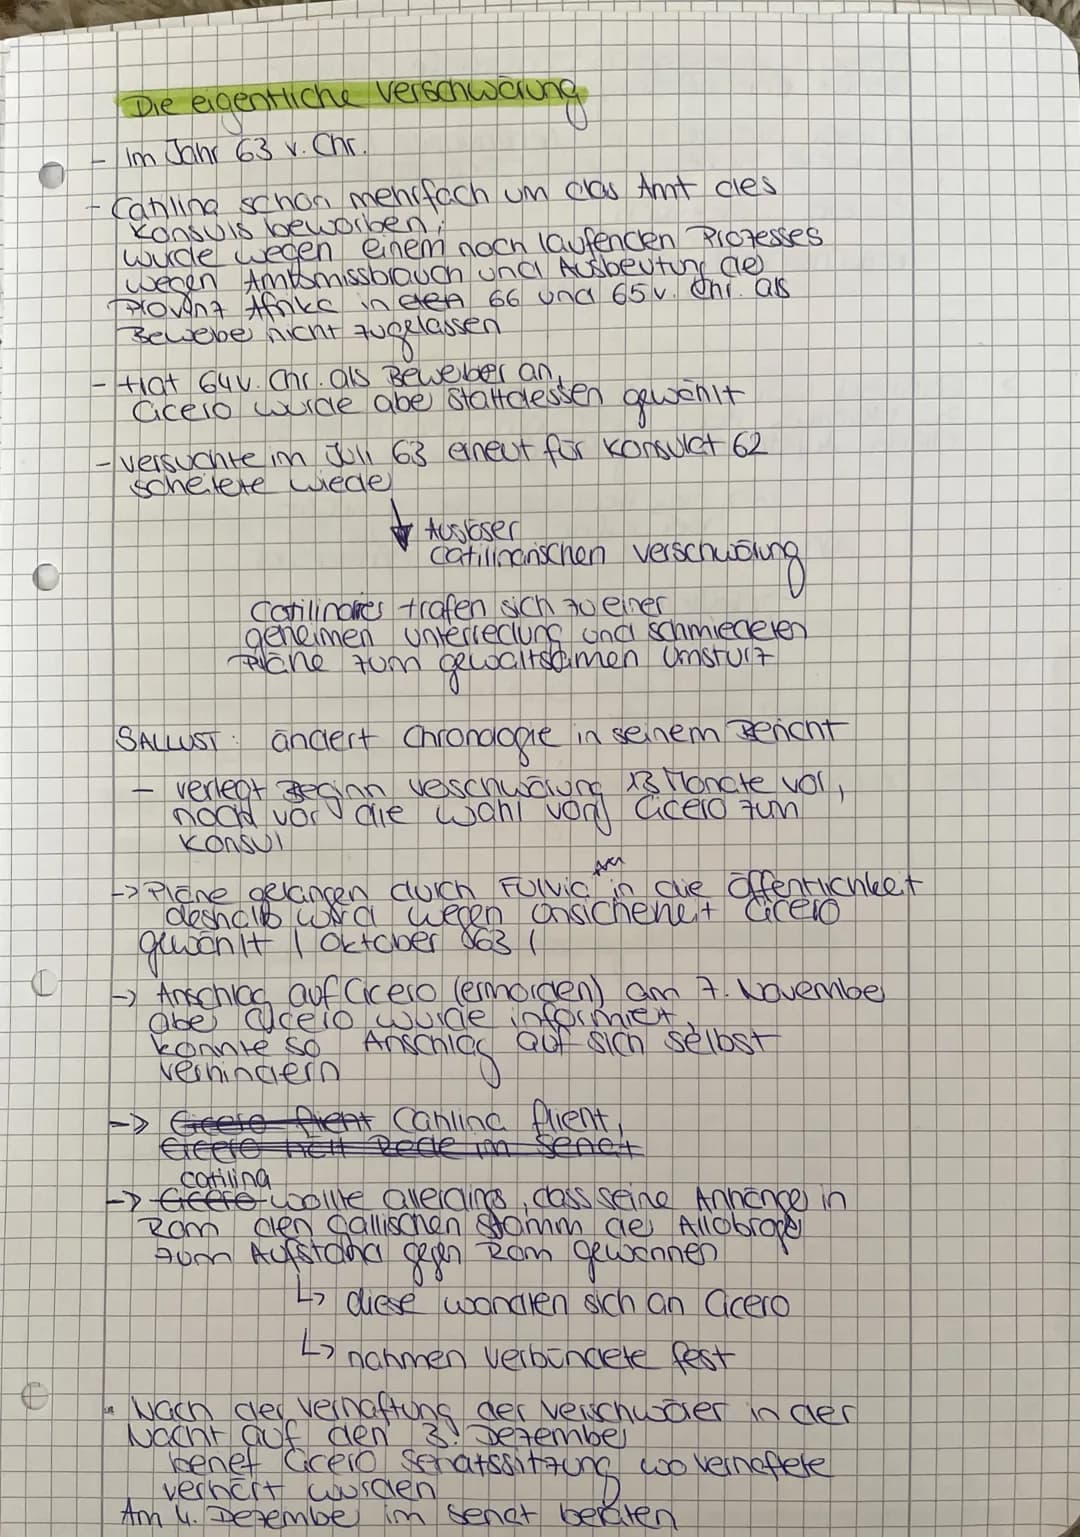 Die eigentliche Verschwörung
- im Jahr 63 v. Chr.
- Catilina schon mehrfach um das Amt des
Konsuls beworben;
wurde wegen einem noch laufenden Prozesses
wegen Amtsmissbrauch und Ausbeutung der
Provinz Afrika in den 66 und 65 v. Chr. als
Bewerber nicht zugelassen
- trat 64 v. Chr. als Bewerber an,
Cicero wurde aber stattdessen gewählt
- versuchte im Juli 63 erneut für Konsulat 62
scheiterte wieder
↓ Auslöser
catilinarischen Verschwörung
trafen sich zu einer
geheimen Unterredung und schmiedeten
Pläne zum gewaltsamen Umsturz
SALLUST: ändert Chronologie in seinem Bericht
- verlegt Beginn Verschwörung 13 Monate vor,
noch vor die Wahl von Cicero zum
Konsul
-> Pläne gelangen durch Fulvia in die Öffentlichkeit
deshalb wird wegen Unsicherheit Cicero
gewählt | Oktober 63 |
-> Anschlag auf Cicero (ermorden) am 7. November
aber Cicero wurde informiert,
konnte so Anschlag auf sich selbst
verhindern
-> Cicero flieht Catilina flieht,
Cicero hält Rede im Senat
catilina
-> Cicero wollte allerdings, dass seine Anhänger in
Rom den gallischen Stamm der Allobroger
zum Aufstand gegen Rom gewannen
↳ diese wandten sich an Cicero
↳ nahmen Verbündete fest
- Nach der Verhaftung der Verschwörer in der
Nacht auf den 3. Dezember
berief Cicero Senatssitzung wo verhaftete
verhört wurden
Am 4. Dezember im Senat beraten